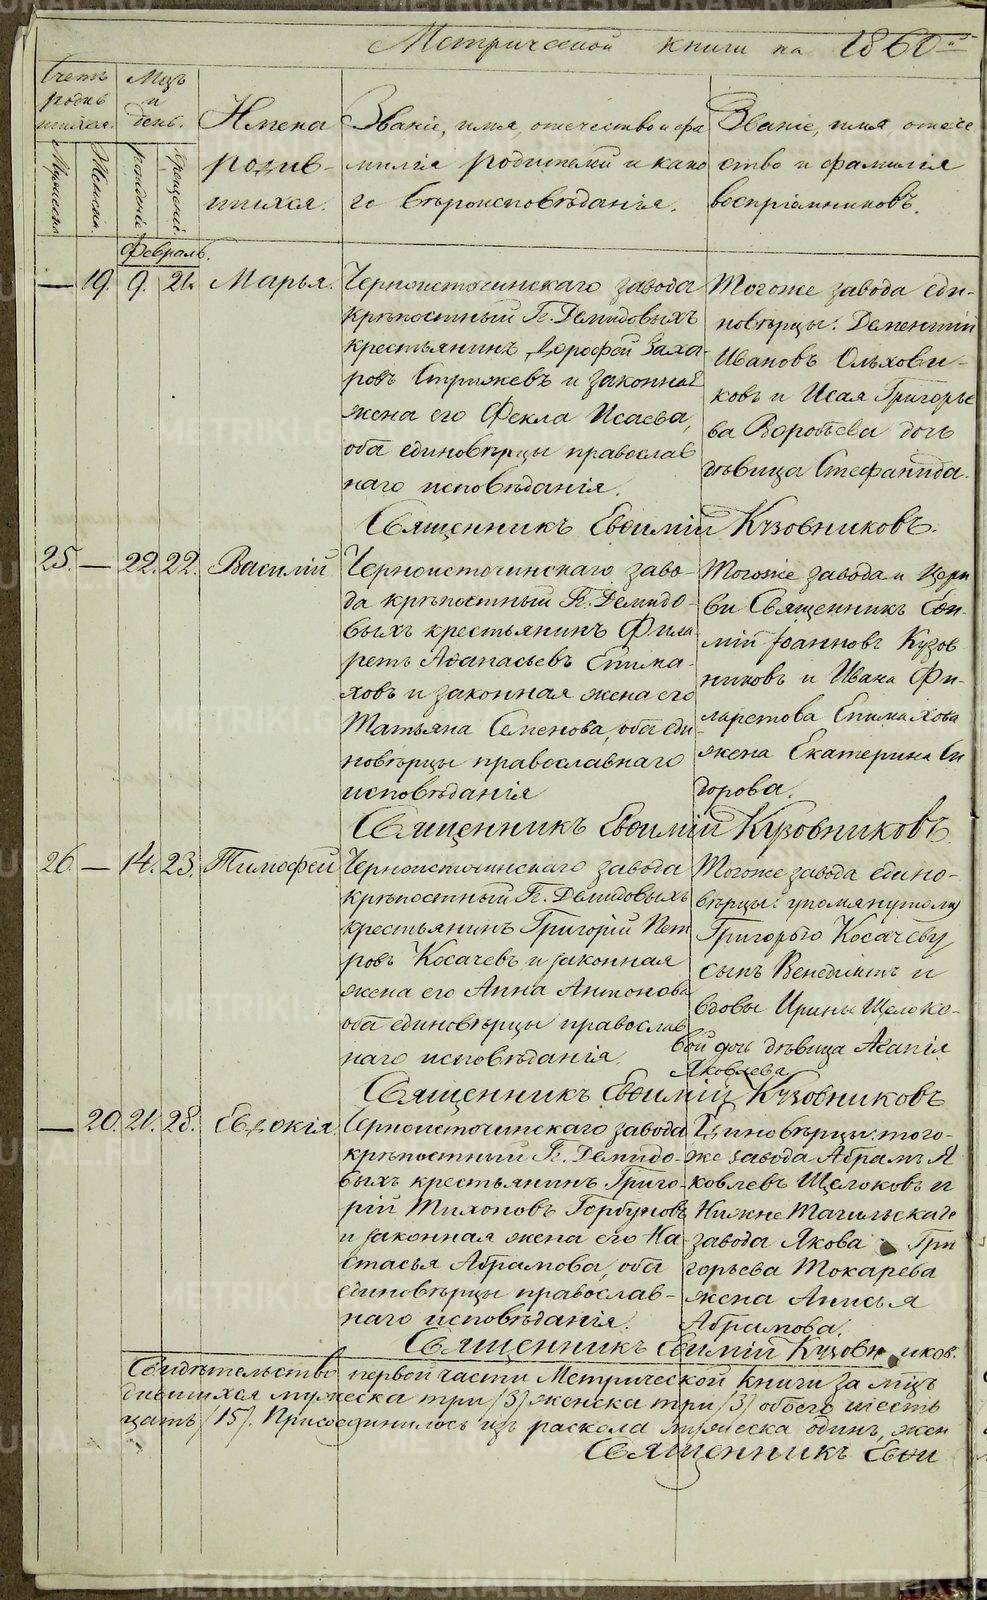 Метрической книги на 1860й
Счетъ родив шихся.
Мужеска
Женска.
Мцъ и день.
рожденія
крещенія.
Имена родив- шихся.
Званіе, имя, отечество и фа милія родителей и како го вѣроисповѣданія.
Званіе, имя отече ство и фамилія воспріемниковъ.
Февраль.
— 19. 9. 21. Марья.
Черноисточинскаго завода
крѣпостный Г. Демидовыхъ
крестьянинъ Дорофей Заха-
ровъ Стрижевъ и законная
жена его Фекла Исаева,
оба единовѣрцы православ
наго исповѣданія.
Тогоже завода еди-
новѣрцы: Дементій
Ивановъ Ольхови-
ковъ и Исая Григорье
ва Воробьева дочь
дѣвица Стефанида.
Священникъ Евѳимій Кузовниковъ.
25. — 22. 22. Василій
Черноисточинскаго заво-
да крѣпостный Г. Демидо-
выхъ крестьянинъ Фила
ретъ Аѳанасьевъ Епима-
ховъ и законная жена его
Татьяна Семенова, оба еди
новѣрцы православнаго
исповѣданія
Тогоже завода и Церк
ви Священникъ Евѳи-
мій Іоанновъ Кузов
никовъ и Ивана Фи-
ларетова Епимахова
жена Екатерина Си
дорова.
Священникъ Евѳимій Кузовниковъ
26. — 14. 23. Тимофей
Черноисточинскаго завода
крѣпостный Г. Демидовыхъ
крестьянинъ Григорій Пет
ровъ Косачевъ и законная
жена его Анна Антонова
оба единовѣрцы православ
наго исповѣданія
Тогоже завода едино-
вѣрцы: упомянутому
Григорью Косачеву
сынъ Венедиктъ и
вдовы Ирины Щелоко-
вой дочь дѣвица Агапія
Яковлева
Священникъ Евѳимій Кузовниковъ
— 20. 21. 28. Евдокія
Черноисточинскаго завода
крѣпостный Г. Демидо-
выхъ крестьянинъ Григо-
рій Тихоновъ Горбуновъ
и законная жена его На-
стасья Абрамова, оба
единовѣрцы православ-
наго исповѣданія.
Единовѣрцы: того-
же завода Абрамъ Я
ковлевъ Щелоковъ и
Нижне Тагильскаго
завода Якова Гри
горьева Токарева
жена Анисья
Абрамова.
Священникъ Евѳимій Кузовниковъ.
Свидѣтельство первой части Метрической книги за мцъ
дившихся мужеска три /3/ женска три /3/ обоего шесть
цать /15/. Присоединилось изъ раскола мужеска одинъ, жен
Священникъ Евѳи
METRIKI.GASO-URAL.RU